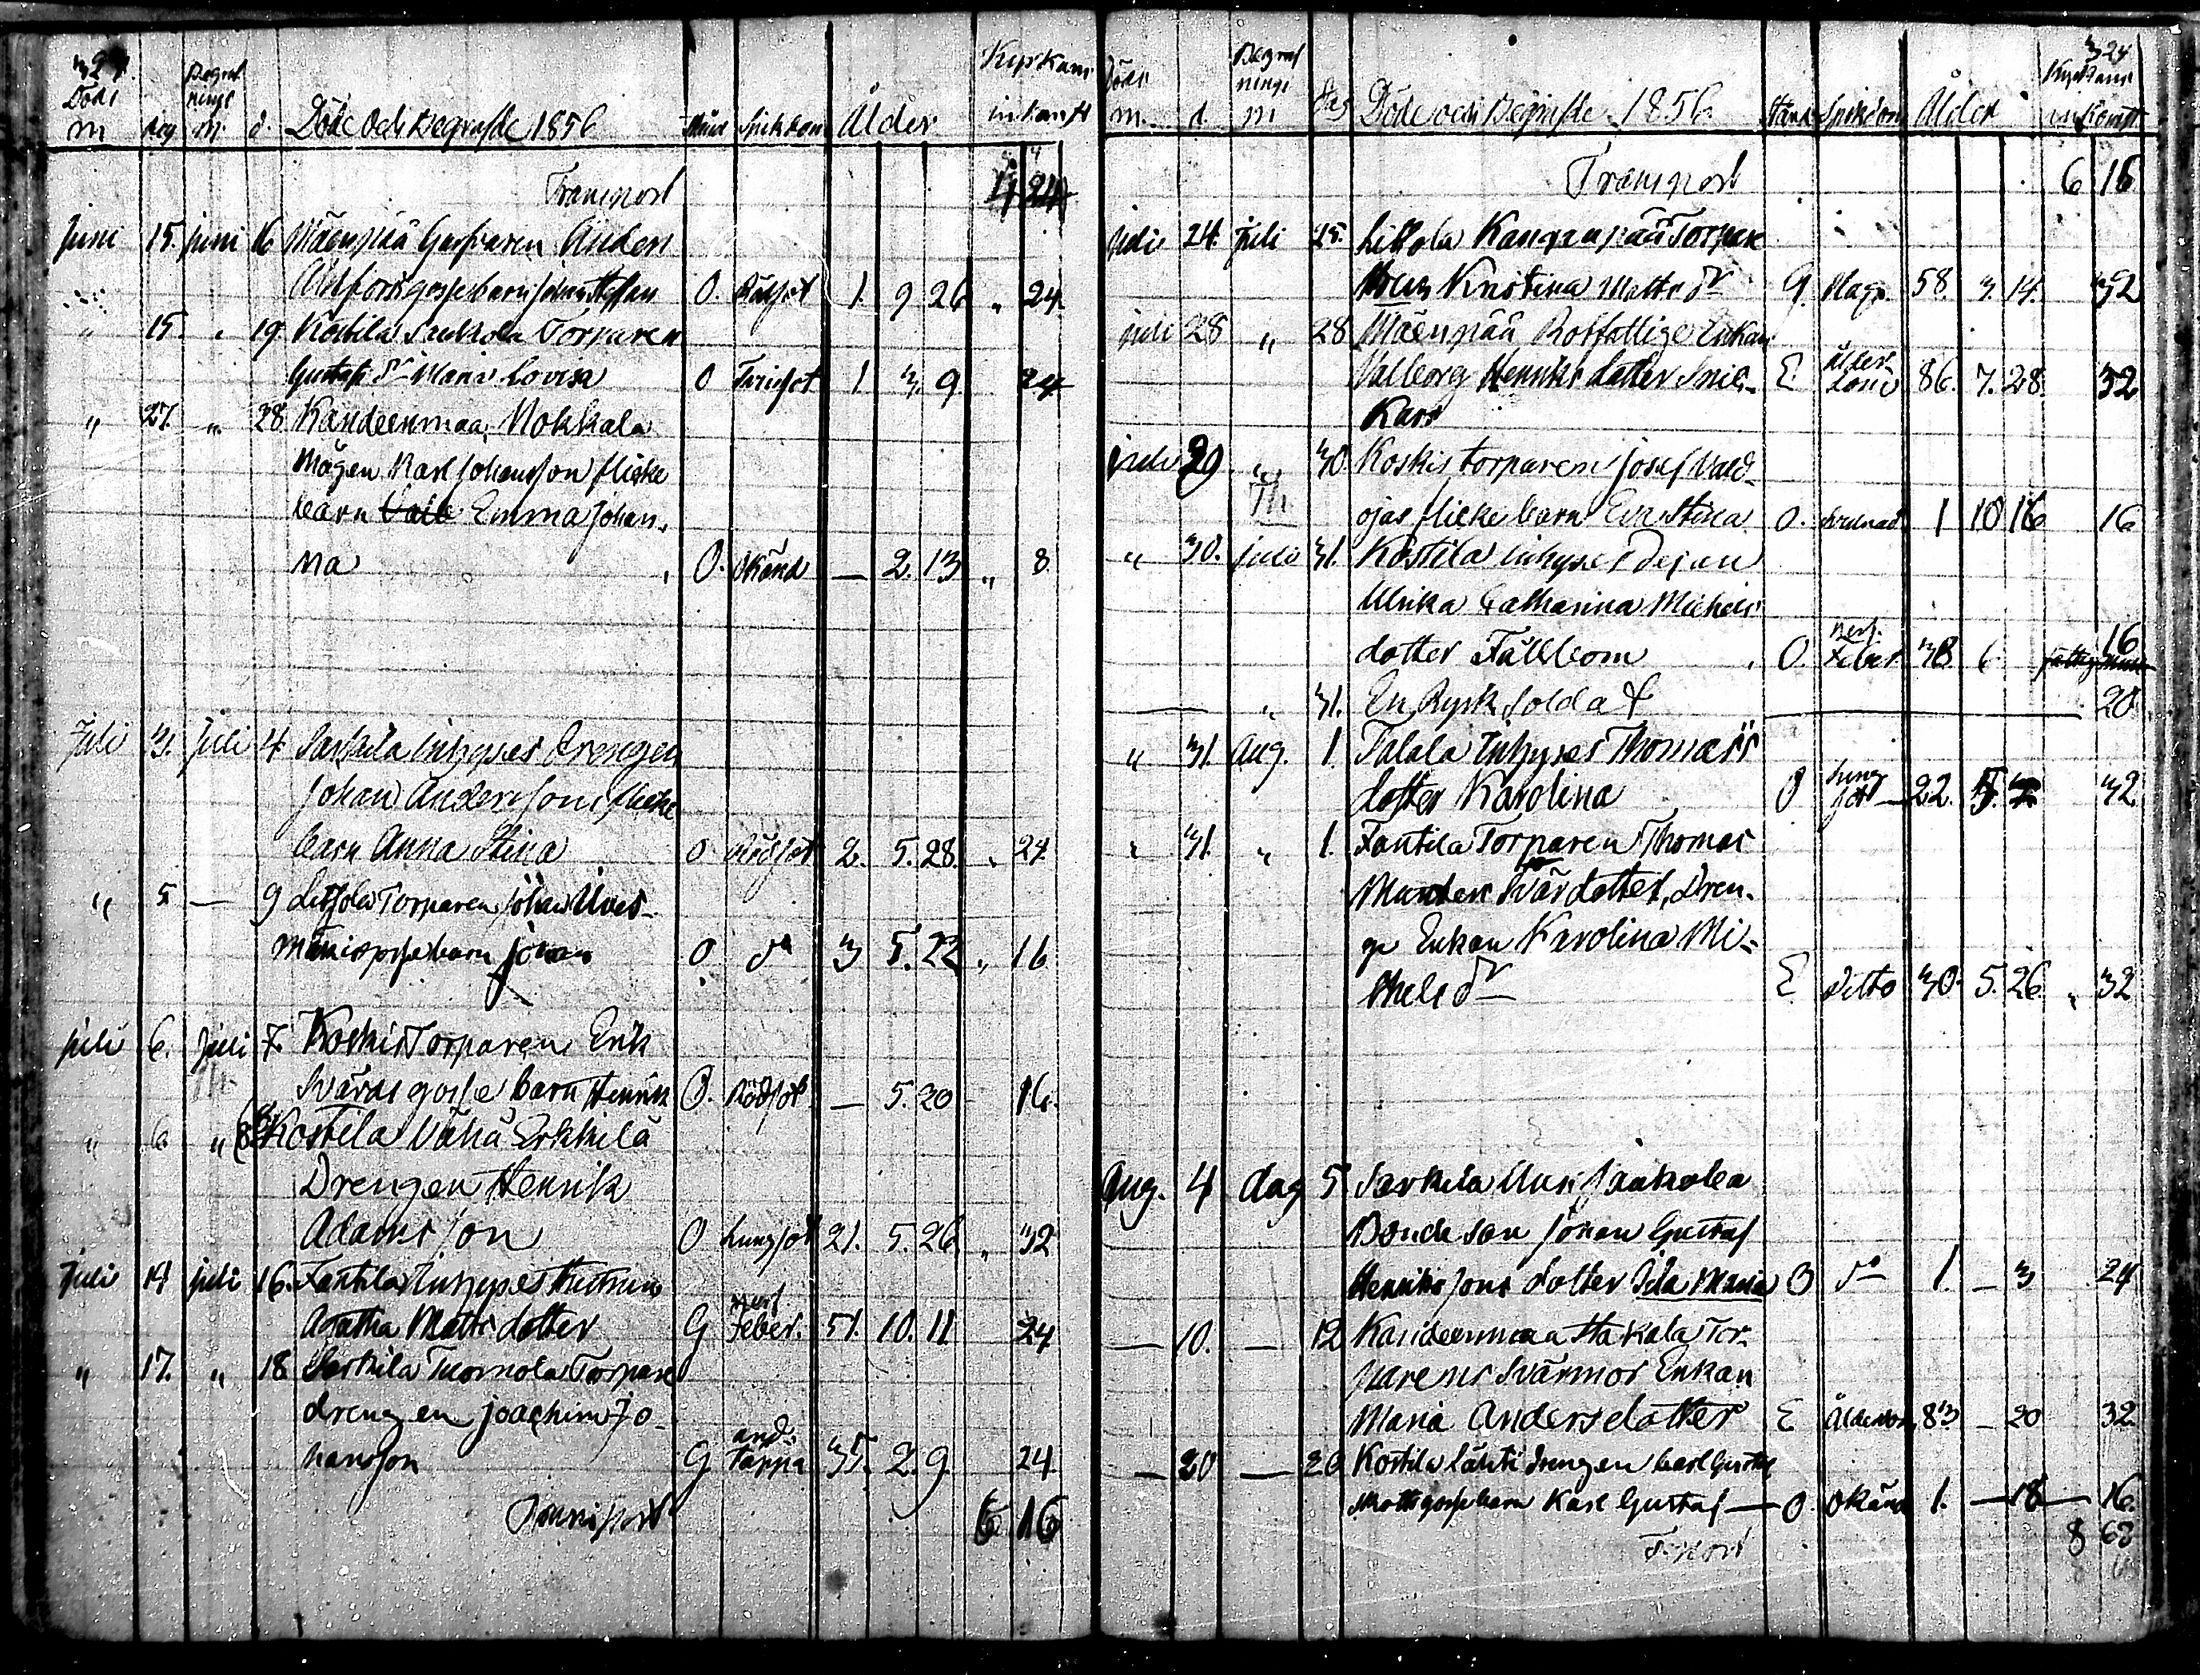 324.
Döds Begraf nings Kyrkans
m dag m. d. Döde och Begrafde 1856 Stånd Sjukdom Ålder inkomst
Transport 4 24
juni 15. juni 16 Mäenpää Anders
gossebarn Johan Staffan O. Rödsot 1. 9 26 " 24
" 15. " 19. Kostila Saukola Torparen
Gustafs dr Maria Lovisa O Tvinsot 1 3. 9. 24
" 27. " 28 Kandeenmaa, Nokkala
Mågen Karl Johansson flicke
barn Emma Johan-
na O. Okänd — 2. 13 " 8
Juli 3. Juli 4 Sarkila Inhyses Drengen
Johan Anderssons flicke
barn Anna Stina O Rödsot 2. 5. 28. " 24
" 5 — 9 Torparen Johan
gossebarn Johan O do 3 5. 22 " 16
juli 6. Juli 7. Koskis Torparen Erik
Svärds gosse barn Henrik O. Rödsot — 5. 20 16.
" 6 " 8 Kostila Vähä Erkkilä
Drengen Henrik
Adamsson O Lungsot 21. 5. 26. " 32
Juli 14 juli 16. Fantila Inhyses Hustrun
Agatha Matts dotter G Nerf Feber. 51. 10. 11 24
" 17. " 18 Sarkila Tuomola Torpare
drengen Joachim Jo-
hansson G and: täppa 35. 2. 9. 24
Transport 6 16
324
Döds Begraf nings Kyrkans
m. d. m dag Döde och Begrafde 1856 Stånd Sjukdom Ålder inkomst
Transport 6 16
juli 24. juli 25. Kangaspää Torpare
Kristina Matts dr G. Mag. 58. 3. 14. 32
juli 28 " 28 Mäenpää Rotfattige Enkan
Valborg Henriks dotter Snic- E Ålder- dom 86. 7. 28. 32
Kars
juli 29 " 30 Koskis torparen Josef Vald-
ojas flicke barn Eva Stina O. Svulnad 1 10 16 16
" 30. juli 31. Kostila inhyses Pejan
Ulrika Catharina Michels
dotter Fällbom O. Nerf. Feber 38 6. 16
— " 31. En Rysk Soldat — 20
" 31. Aug. 1. Talala Inhyses Thomas's
dotter Karolina O Lung sot — 22. 5. 32
" 31. " 1. Fantila Torparen Thomas
Svärdotter, Dren-
ge Enkan Karolina Mi-
chels dr E Ditto 30. 5. 26. " 32
Aug. 4 Aug 5 Sarkila Uusi Saukola
Bonde son Johan Gustaf
Henrikssons dotter Ida Maria O do 1. — 3 24
— 10. — 12 Kandeenmaa Hakala Tor-
parens Svärmor Enkan
Maria Andersdotter E Ålderdom 83 — 20 32
— 20 — 26 Kostila Lähti drengen Carl Gustaf
Matts gossebarn Karl Gustaf — O. Okänd 1. — 18 — 16.
T:port 8 62